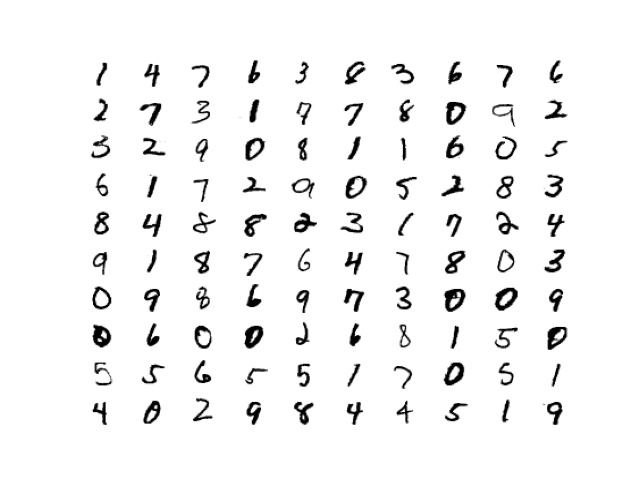 1 4 7 6 3 8 3 6 7 6
2 7 3 1 7 7 8 0 9 2
3 2 9 0 8 1 1 6 0 5
6 1 7 2 9 0 5 2 8 3
8 4 8 8 2 3 1 7 2 4
9 1 8 7 6 4 7 8 0 3
0 9 8 6 9 7 3 0 0 9
0 6 0 0 2 6 8 1 5 0
5 5 6 5 5 1 7 0 5 1
4 0 2 9 8 4 4 5 1 9